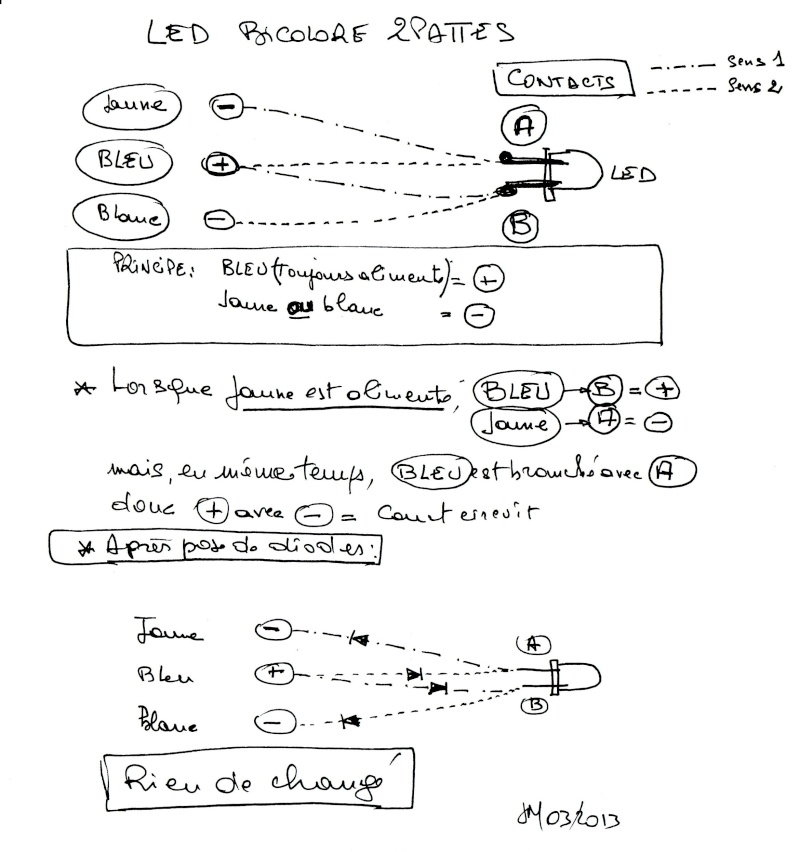 LED BICOLORE 2PATTES
CONTACTS
Sens 1
Sens 2
Jaune -
BLEU +
Blanc -
A
LED
B
PRINCIPE: BLEU (toujours alimenté) = +
Jaune ou blanc = -
* Lorsque Jaune est alimenté, BLEU → B = +
Jaune → A = -
mais, en même temps, BLEU est branché avec A
donc + avec - = Court circuit
* Après pose de diodes:
Jaune -
Bleu +
Blanc -
A
B
Rien de changé
JM 03/2013